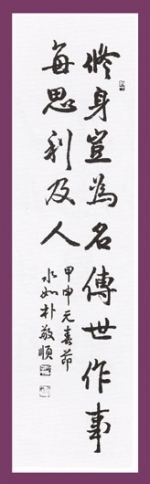 修身豈為名傳世作事
每思利及人
甲申元春節
水如朴敬順